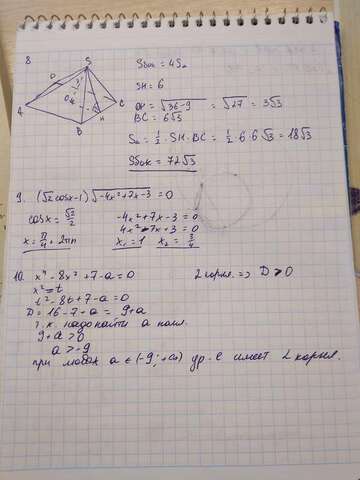 8
S
A
B
C
H
Sбок = 4S△
SH = 6
OH = √36-9 = √27 = 3√3
BC = 6√3
S△ = 1/2 · SH · BC = 1/2 · 6 · 6√3 = 18√3
Sбок = 72√3
9. (√2 cosx-1)√-4x²+7x-3 = 0
cosx = √2/2
x = π/4 + 2πn
-4x²+7x-3 = 0
4x²-7x+3 = 0
x₁ = 1 x₂ = 3/4
10. x⁴ - 8x² + 7-a = 0
2 корня. => D > 0
x² = t
t² - 8t + 7-a = 0
D = 16-7+a = 9+a
т.к. надо найти а
9+a > 0
a > -9
при любом a ∈ (-9; +∞) ур-е имеет 2 корня.